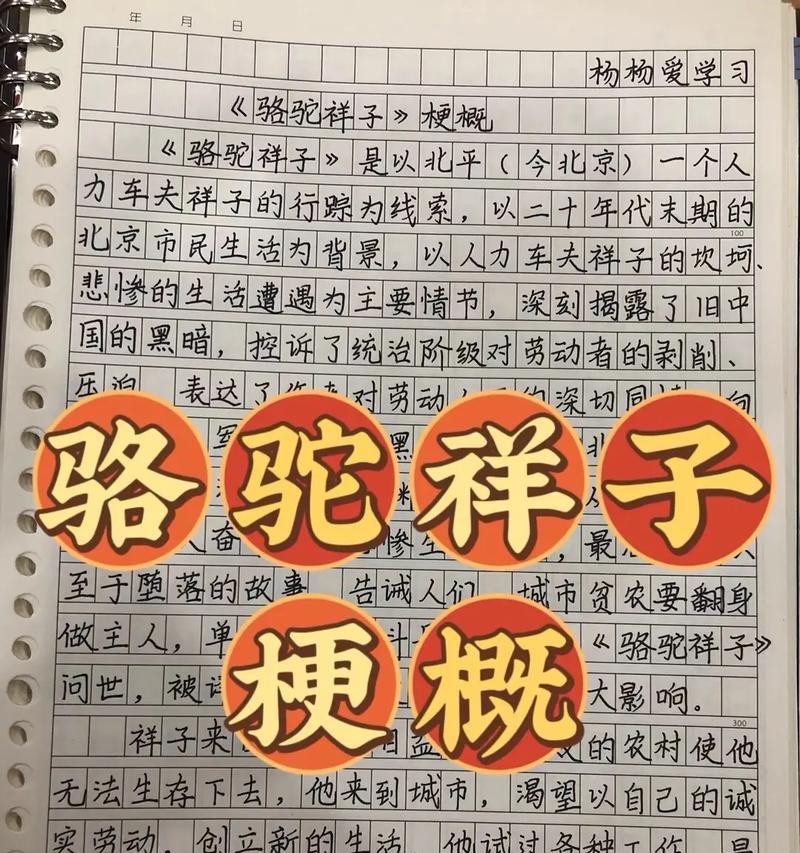 年 月 日
杨杨爱学习
《骆驼祥子》梗概
《骆驼祥子》是以北平(今北京)一个人
力车夫祥子的行踪为线索，以二十年代末期的
100
北京市民生活为背景，以人力车夫祥子的坎坷、
悲惨的生活遭遇为主要情节，深刻揭露了旧中
国的黑暗，控诉了统治阶级对劳动者的剥削、
压迫 表达了 对劳动 深切同情 向
黑 北
骆驼祥子
奋 惨 ，最
至于堕落的故事 告诫人们 城市贫农要翻身
做主人，单 《骆驼祥子》
梗概
问世，被 大影响。
300
祥子来 的农村使他
无法生存下去，他来到城市，渴望以自己的诚
实劳动，创立新的生活 他试过各种工作 是